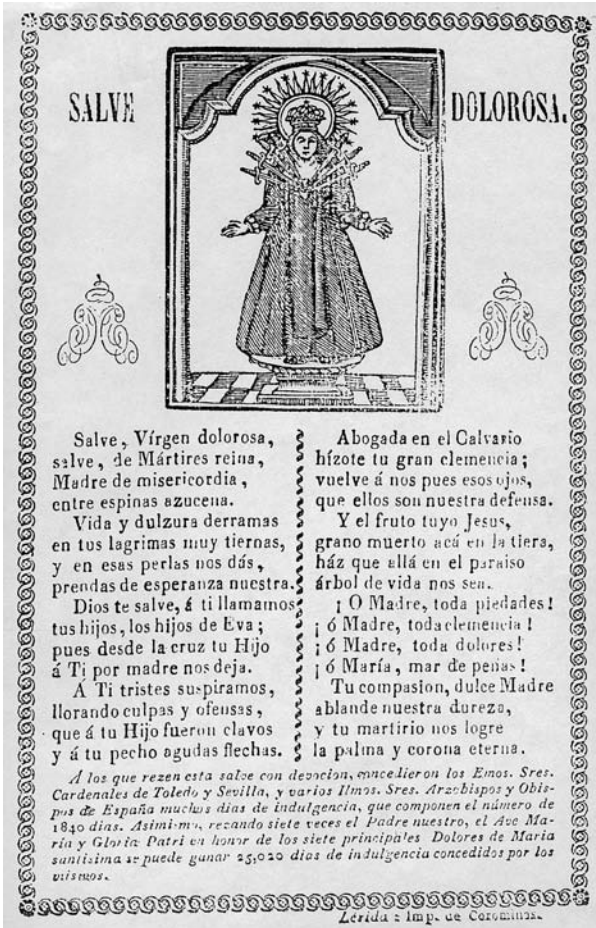 SALVE DOLOROSA.
Salve, Vírgen dolorosa,
salve, de Mártires reina,
Madre de misericordia,
entre espinas azucena.
Vida y dulzura derramas
en tus lagrimas muy tiernas,
y en esas perlas nos dás,
prendas de esperanza nuestra.
Dios te salve, á ti llamamos
tus hijos, los hijos de Eva;
pues desde la cruz tu Hijo
á Ti por madre nos deja.
Á Ti tristes suspiramos,
llorando culpas y ofensas,
que á tu Hijo fueron clavos
y á tu pecho agudas flechas.
Abogada en el Calvario
hízote tu gran clemencia;
vuelve á nos pues esos ojos,
que ellos son nuestra defensa.
Y el fruto tuyo Jesus,
grano muerto acá en la tiera,
ház que allá en el paraiso
árbol de vida nos sea.
¡O Madre, toda piedades!
¡ó Madre, toda clemencia!
¡ó Madre, toda dolores!
¡ó María, mar de penas!
Tu compasion, dulce Madre
ablande nuestra dureza,
y tu martirio nos logre
la palma y corona eterna.
A los que rezen esta salve con devocion, concedieron los Emos. Sres.
Cardenales de Toledo y Sevilla, y varios Ilmos. Sres. Arzobispos y Obis-
pos de España muchos dias de indulgencia, que componen el número de
1840 dias. Asimismo, rezando siete veces el Padre nuestro, el Ave Ma-
ría y Gloria Patri en honor de los siete principales Dolores de Maria
santisima se puede ganar 25,020 dias de indulgencia concedidos por los
mismos.
Lérida: Imp. de Corominas.